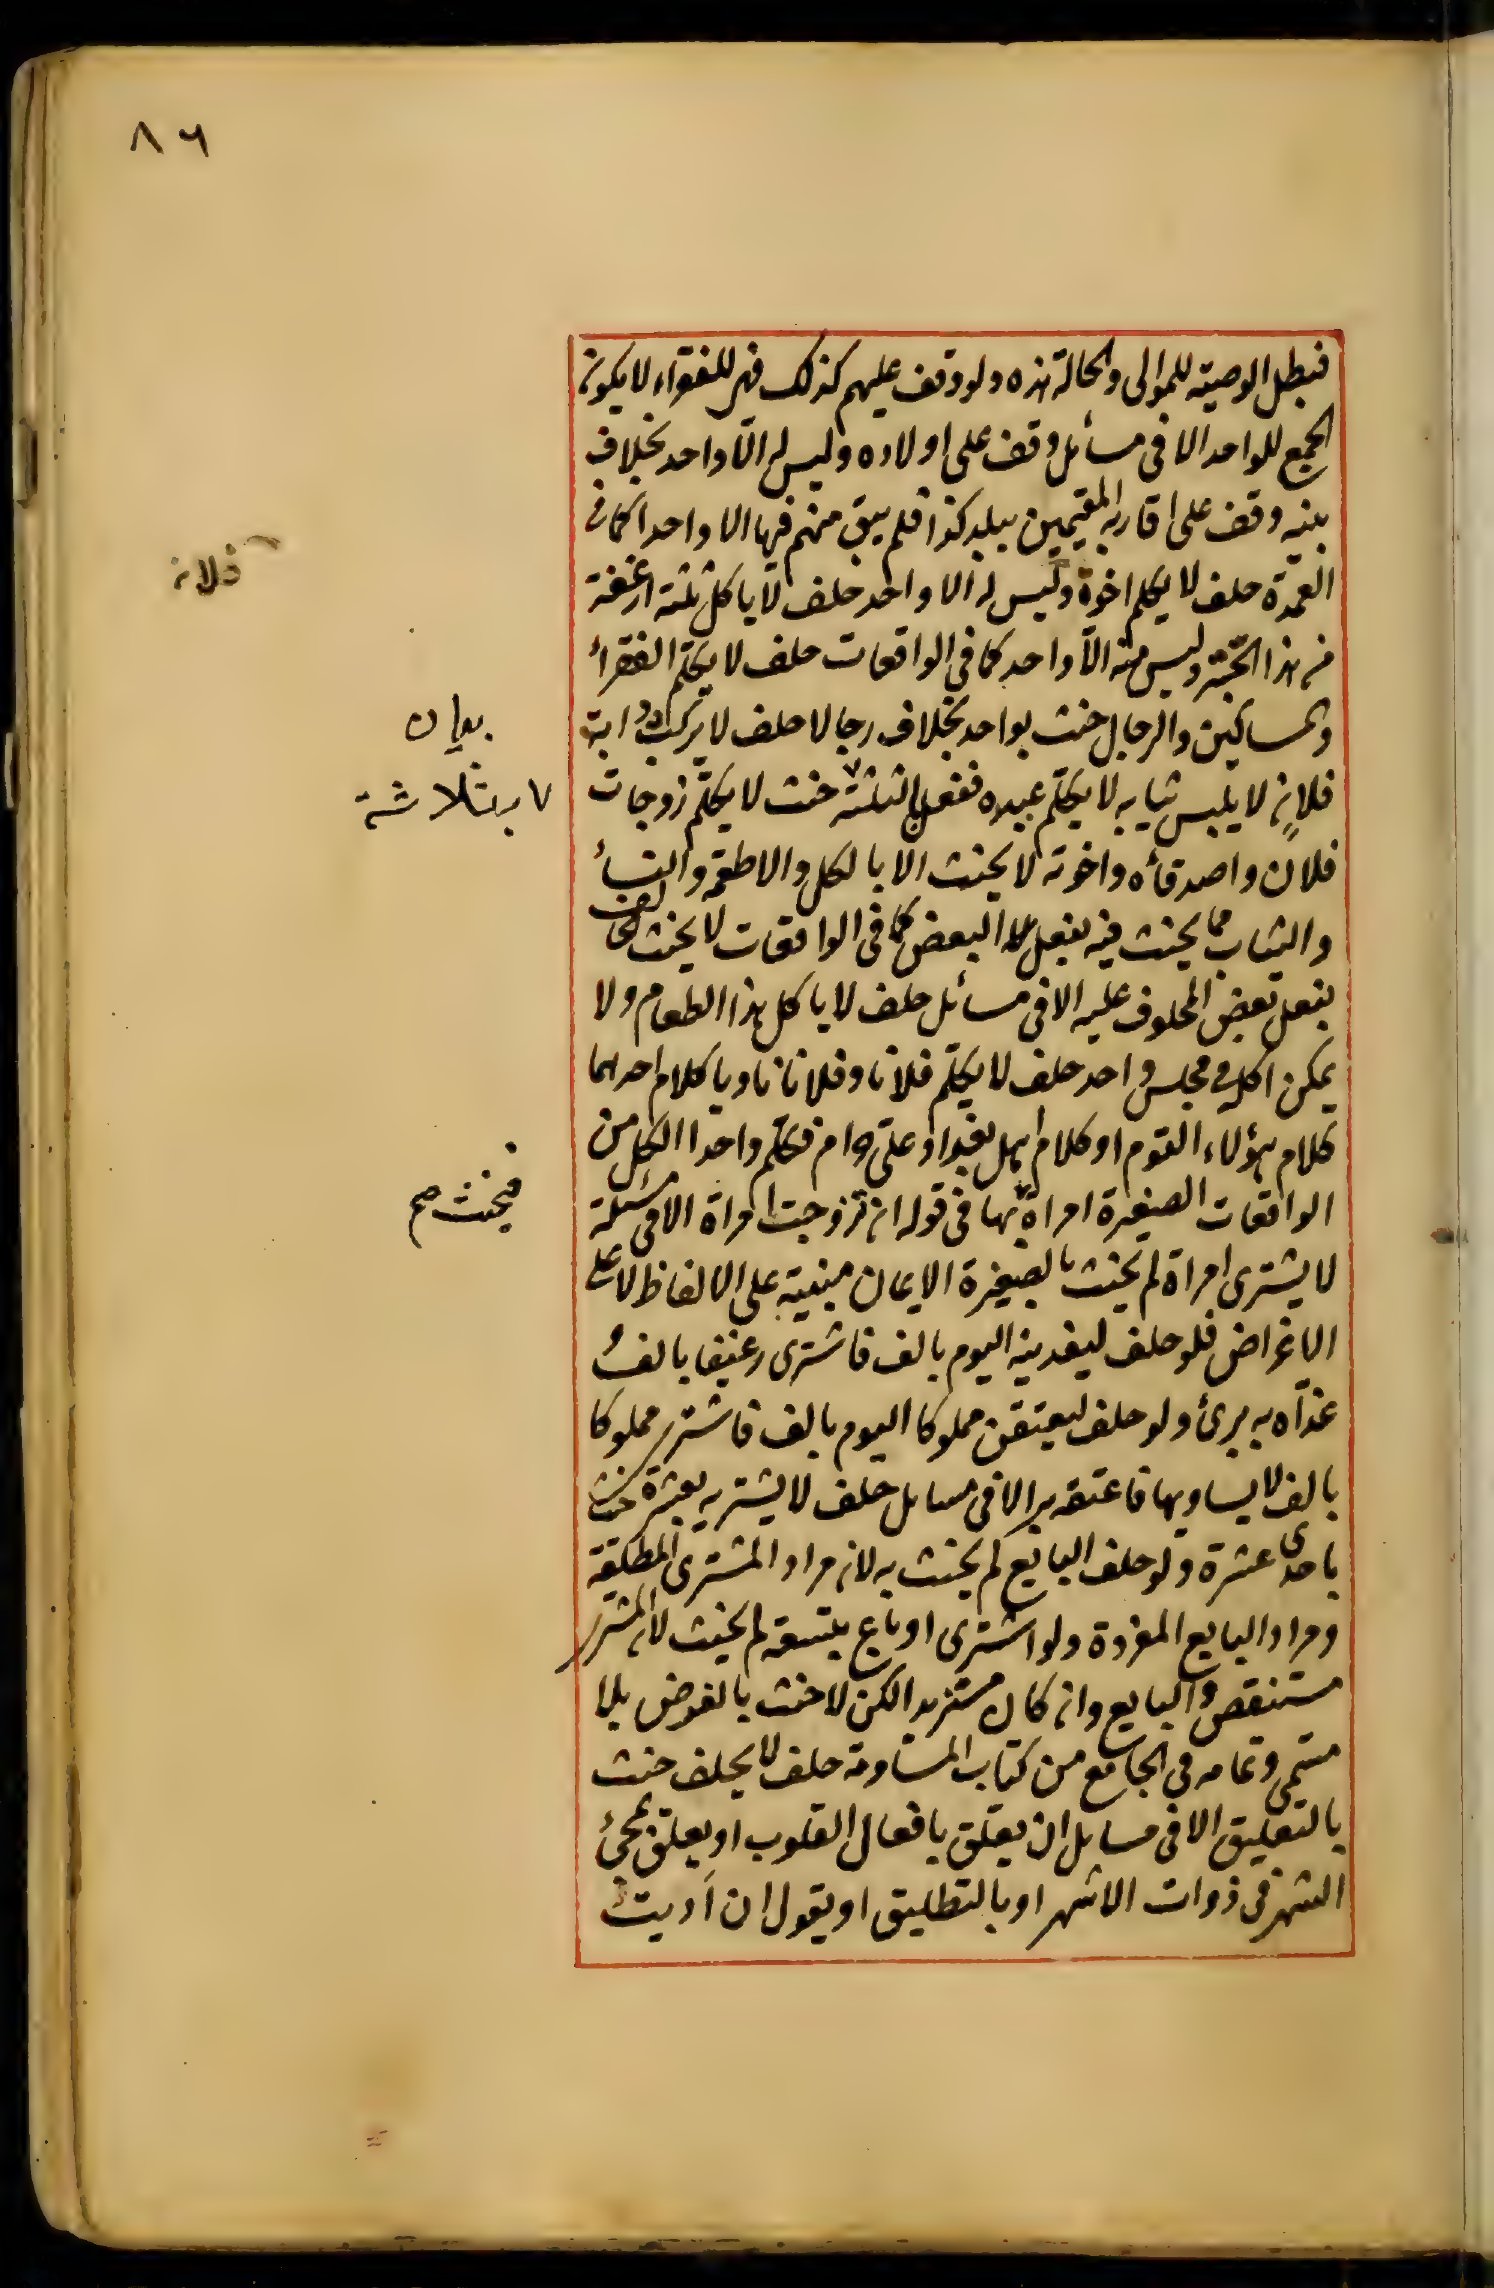 ٨٦
فبطل الوصية للموالى والحالة هذه ولو وقف عليهم كذلك فهى للفقراء لا يكون
الجمع للواحد الا فى مسائل وقف على اولاده وليس له الّا واحد بخلاف
بنيه وقف على اقاربه المقيمين ببلد كذا فلم يبق منهم فيها الا واحد كما فى
العمدة حلف لا يكلم اخوة وليس له الا واحد حلف لا ياكل ثلثة ارغفة
من هذا الحب وليس منه الّا واحد كما فى الواقعات حلف لا يكلم الفقراء
والمساكين والرجال حنث بواحد بخلاف رجالا حلف لا يركب دواب
فلان لا يلبس ثيابه لا يكلم عبيده ففعل الثلثة حنث لا يكلم زوجات
فلان واصدقاءه واخوته لا يحنث الا بالكل والاطعمة والنساء
والثياب مما يحنث فيه بفعل البعض كما فى الواقعات لا يحنث الحالف
بفعل بعض المحلوف عليه الا فى مسائل حلف لا ياكل هذا الطعام ولا
يمكن اكله فى مجلس واحد حلف لا يكلم فلانا وفلانا ناويا كلام احدهما
كلام هؤلاء القوم او كلام اهل بغداد علىّ حرام فكلم واحدا الكل من
الواقعات الصغيرة امراة بها فى قوله ان تزوجت امراة الا فى مسئلة
لا يشترى امراة لم يحنث بالصغيرة الايمان مبنية على الالفاظ لا على
الاغراض فلو حلف ليغدينه اليوم بالف فاشترى رغيفا بالف
غدّاه به برئ ولو حلف ليعتقن مملوكا اليوم بالف فاشترى مملوكا
بالف لا يساويها فاعتقه بر الا فى مسايل حلف لا يشتريه بعشرة حنث
باحدى عشرة ولو حلف البايع لم يحنث به لان مراد المشترى المطلقة
ومراد البايع المفردة ولو اشترى او باع بتسعة لم يحنث لان المشترى
مستنقص والبايع وان كان مستزيدا لكن لا حنث بالغرض بلا
مسمى وتمامه فى الجامع من كتاب المساومة حلف لا يحلف حنث
بالتعليق الا فى مسايل ان يعلق بافعال القلوب او يعلق بمجئ
الشهر فى ذوات الاشهر او بالتطليق او يقول ان اديت
فلان
بدان
٧ بثلاثة
فيحنث صح